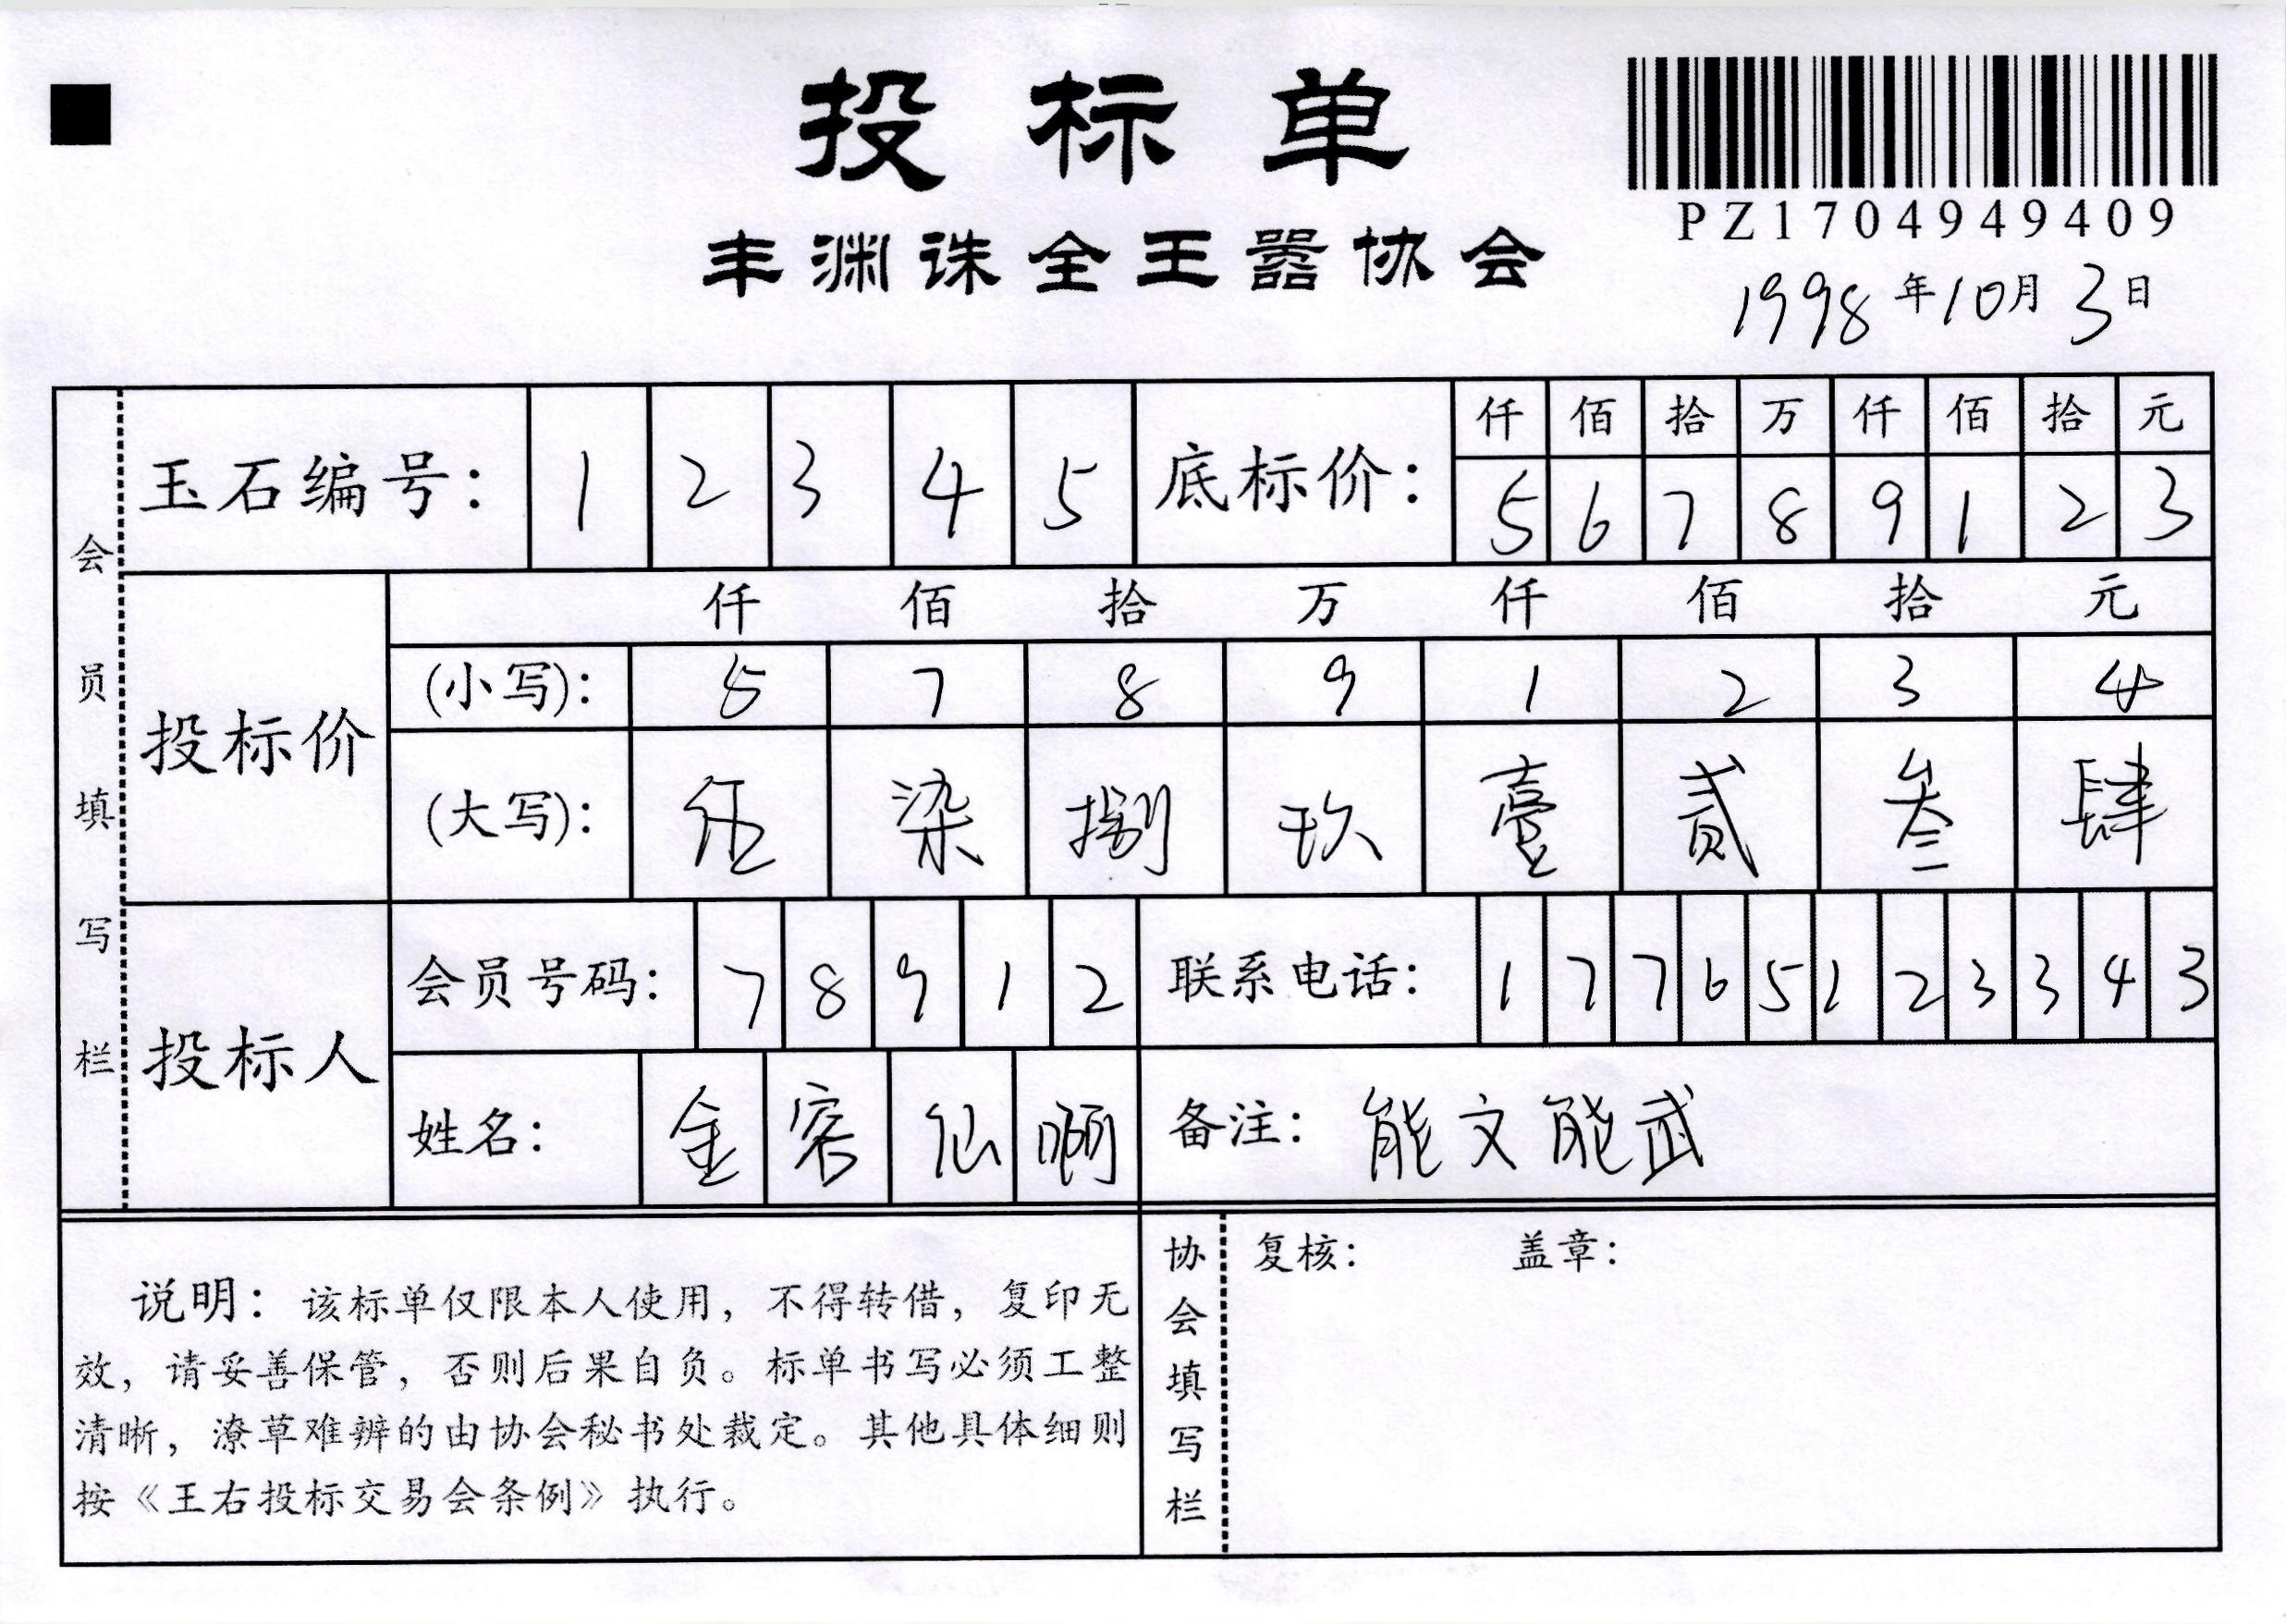 投标单
PZ1704949409
丰渊诛全王嚣协会
1998年10月3日
会员填写栏
玉石编号： 1 2 3 4 5 底标价： 仟 佰 拾 万 仟 佰 拾 元
5 6 7 8 9 1 2 3
仟 佰 拾 万 仟 佰 拾 元
投标价 (小写)： 5 7 8 9 1 2 3 4
(大写)： 伍 柒 捌 玖 壹 贰 叁 肆
投标人 会员号码： 7 8 9 1 2 联系电话： 1 7 7 6 5 1 2 3 3 4 3
姓名： 金 容 仙 啊 备注： 能文能武
说明：该标单仅限本人使用，不得转借，复印无
效，请妥善保管，否则后果自负。标单书写必须工整
清晰，潦草难辨的由协会秘书处裁定。其他具体细则
按《王右投标交易会条例》执行。
协会填写栏
复核： 盖章：